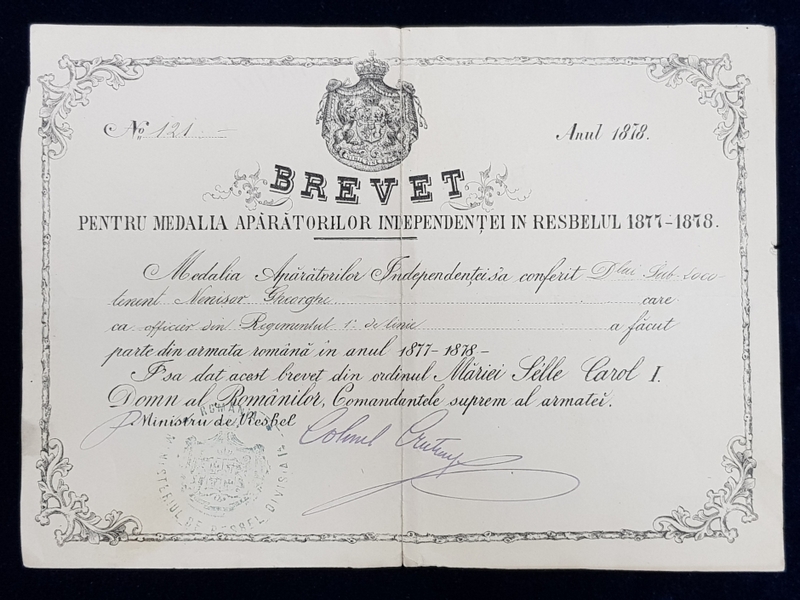 No 121
Anul 1878.
BREVET
PENTRU MEDALIA APĂRĂTORILOR INDEPENDENȚEI IN RESBELUL 1877-1878.
Medalia Apărătorilor Independenței s'a conferit Dlui Sub. Loco-
tenent Nenisor Gheorghe care
ca officier din Regimentul 1 de linie a făcut
parte din armata română în anul 1877-1878-
I s'a dat acest brevet din ordinul Măriei Selle Carol I.
Domn al Românilor, Comandantele suprem al armatei.
p Ministru de Resbel
Colonel
ROMANIA
MINISTERIUL DE RESBEL DIVISIA